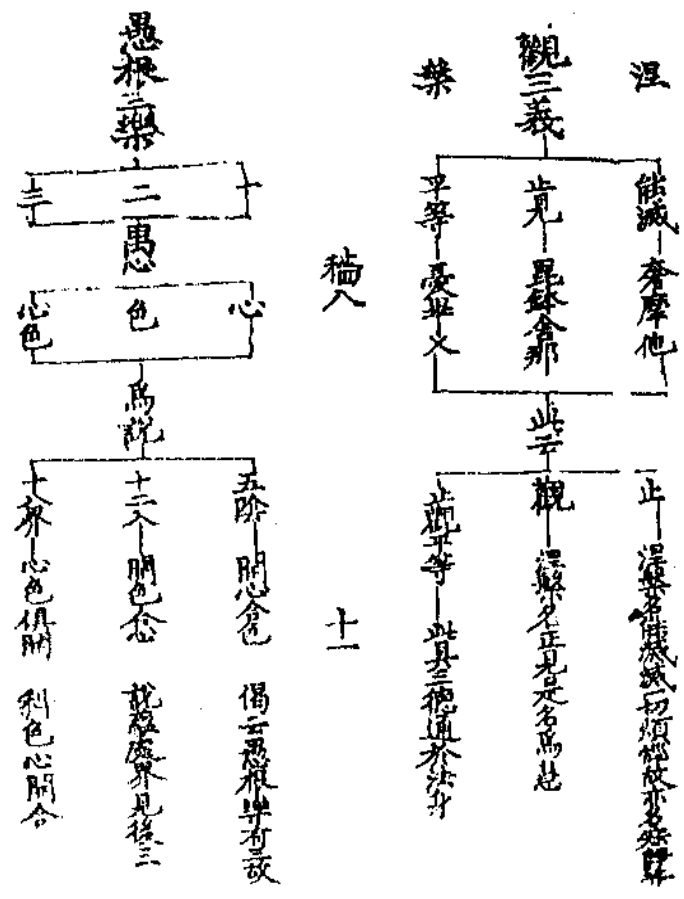 涅
觀三義
槃
能滅─奢摩他
正見─毘鉢舍那
平等─憂畢叉
此云
止─涅槃名能滅滅一切煩惱故亦名
觀─涅槃名正見是名為
止觀平等─此具三德通於法身
十一
愚根三樂
十
二
三
愚
心
色
心色
為說
五陰─開心合色
十二入─開色合心
十界─心色俱開
偈云愚根樂有三故
說蘊處界見後三
色心開合